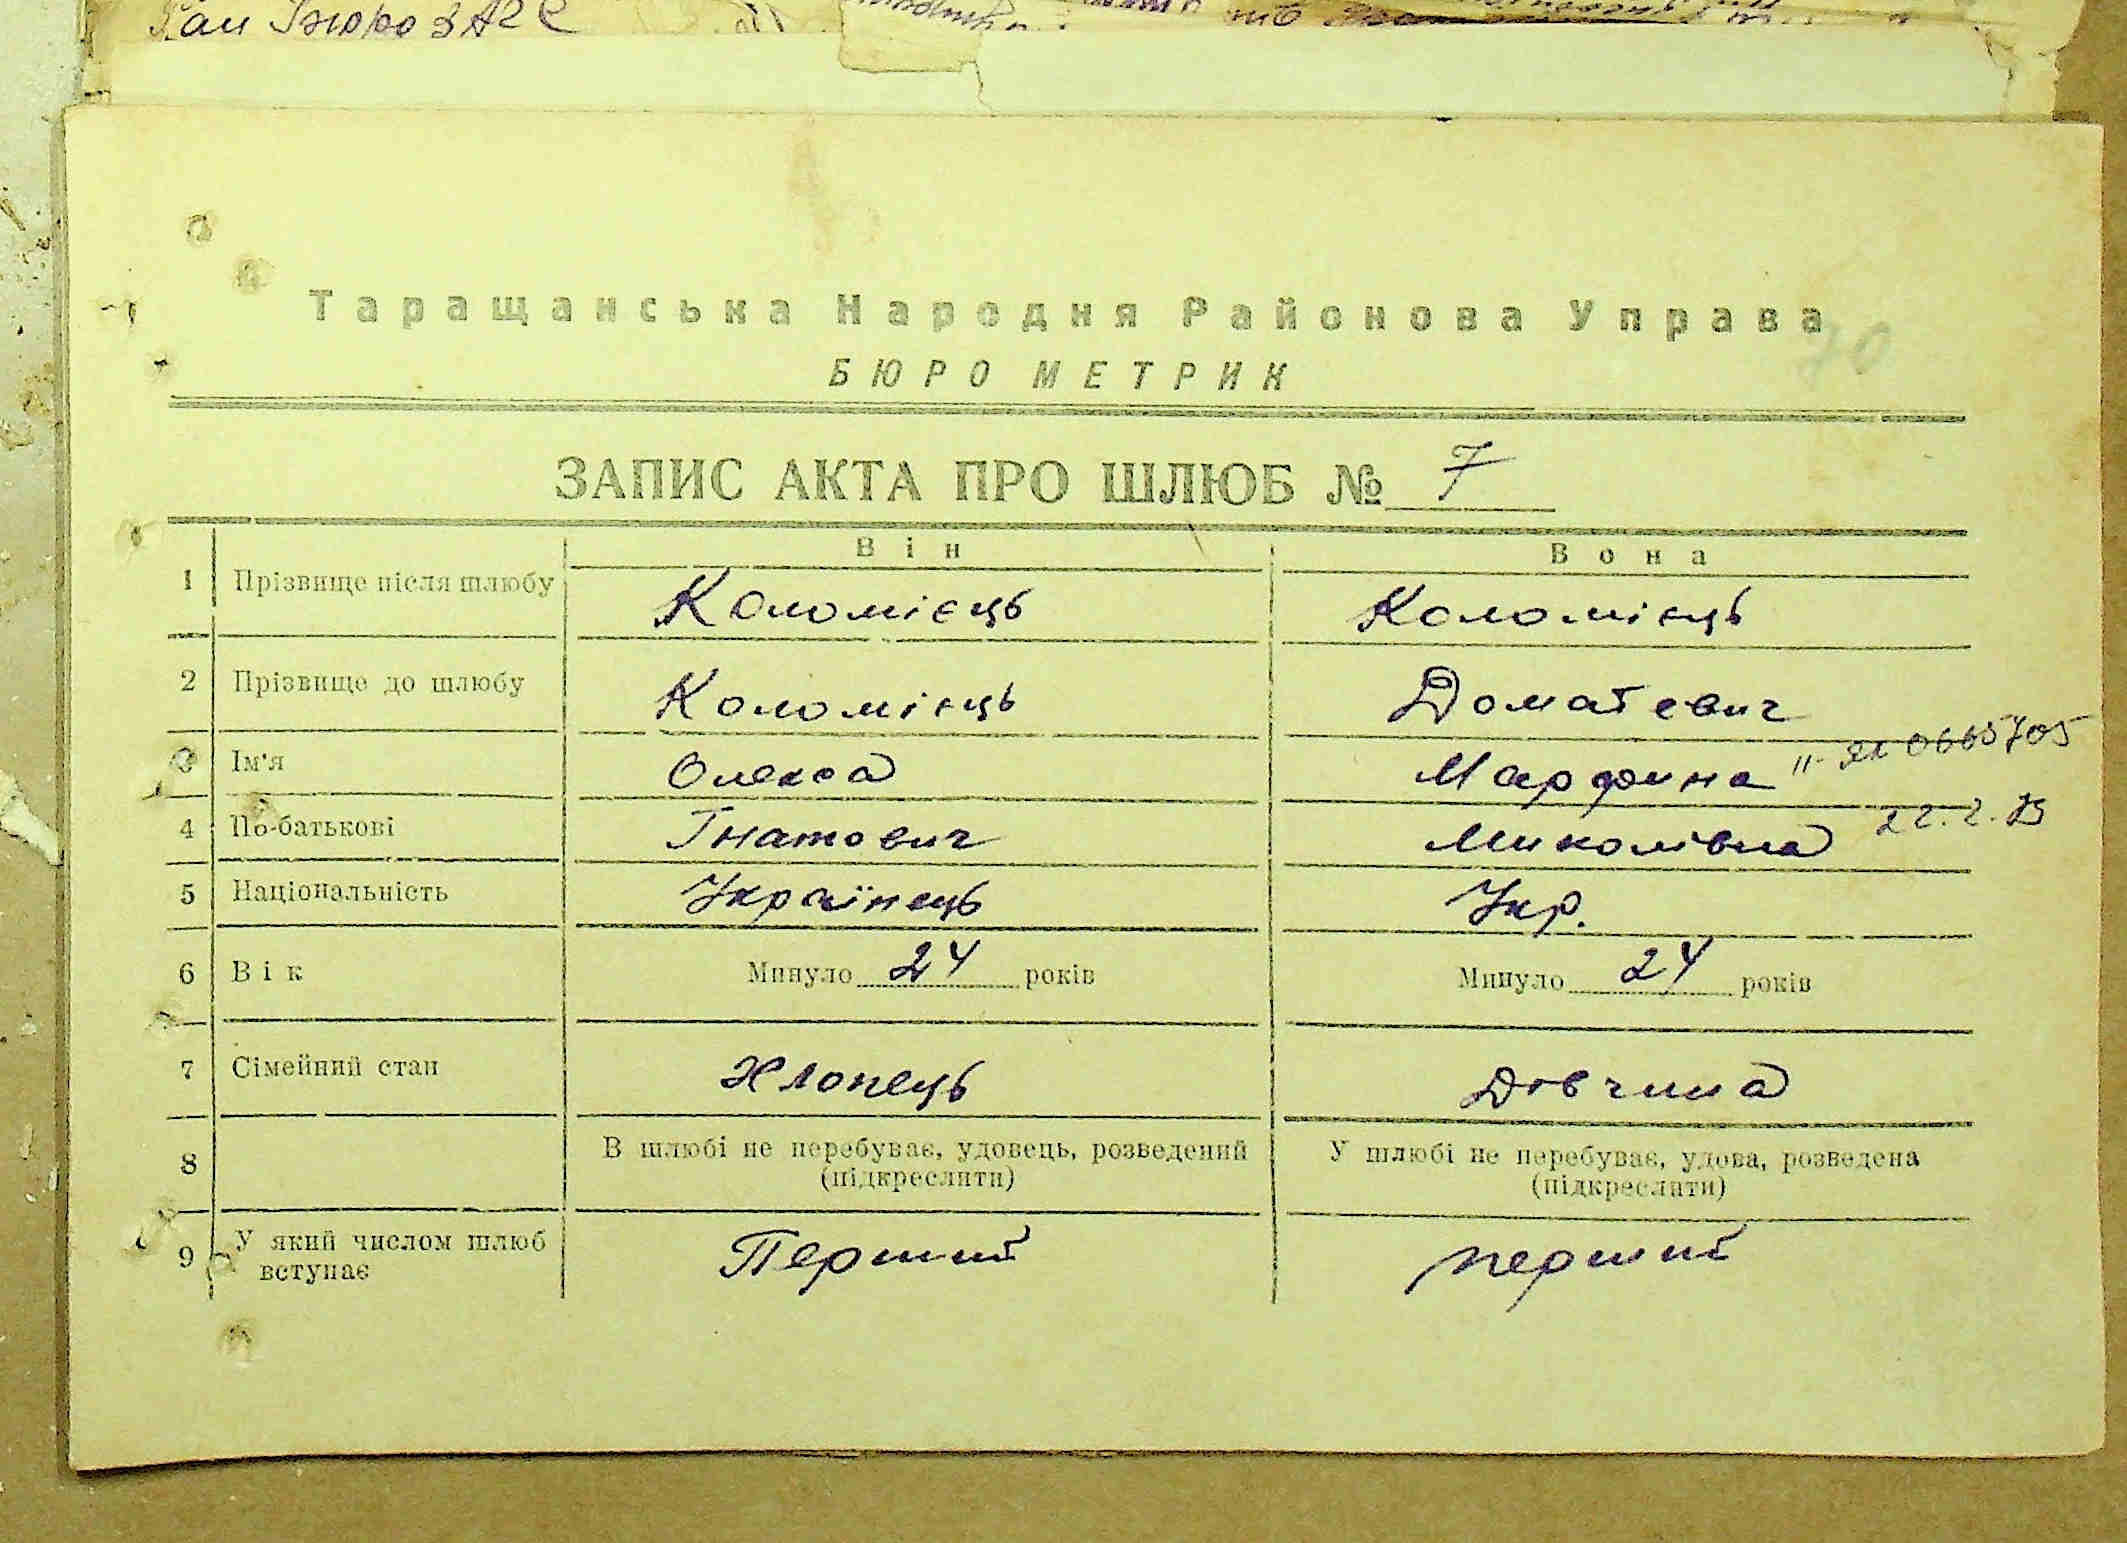 Таращанська Народня Районова Управа
БЮРО МЕТРИК
70
ЗАПИС АКТА ПРО ШЛЮБ № 7
Він Вона
1 Прізвище після шлюбу Коломієць Коломієць
2 Прізвище до шлюбу Коломієць Доматевич
"-ЯК 0665705
3 Ім'я Олекса Марфина
22.2.
4 По-батькові Гнатович Миколівна
5 Національність Українець Укр.
6 Вік Минуло 24 років Минуло 24 років
7 Сімейний стан Хлопець Дівчина
8 В шлюбі не перебуває, удовець, розведений У шлюбі не перебуває, удова, розведена
(підкреслити) (підкреслити)
9 У який числом шлюб Перший перший
вступає